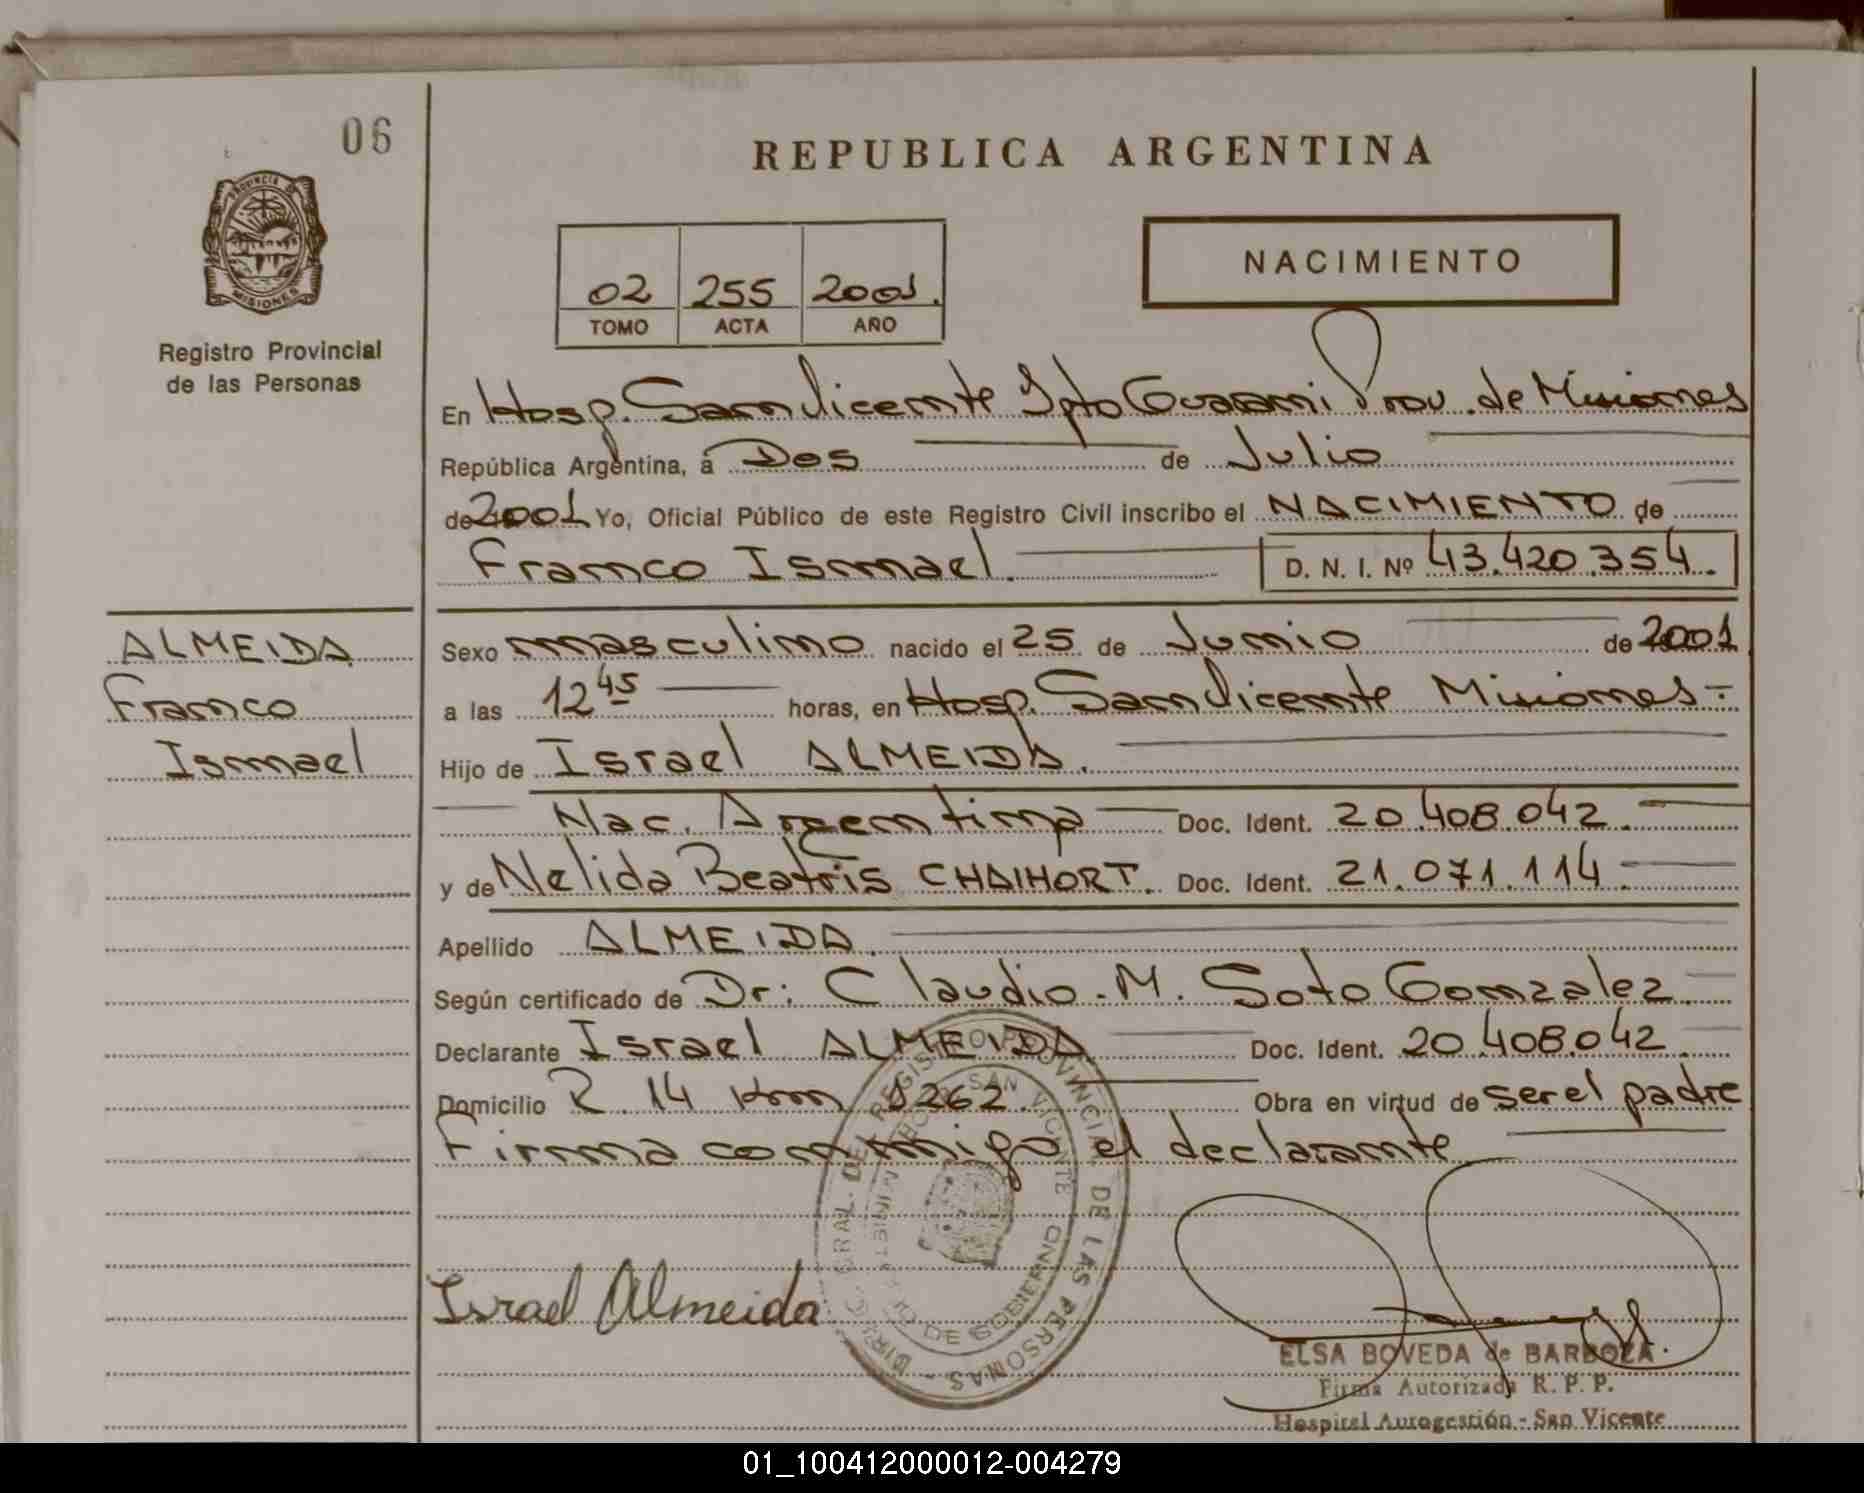 06
REPUBLICA ARGENTINA
PROVINCIA DE
MISIONES
Registro Provincial
de las Personas
02 255 2001.
TOMO ACTA AÑO
NACIMIENTO
En Hosp. San Vicente Dpto Guarani Prov. de Misiones
República Argentina, á Dos de Julio
de 2001 Yo, Oficial Público de este Registro Civil inscribo el NACIMIENTO de
Franco Ismael. D. N. I. Nº 43.420.354.
ALMEIDA
Franco
Ismael
Sexo masculino nacido el 25 de Junio de 2001
a las 12 45 horas, en Hosp. San Vicente Misiones-
Hijo de Israel ALMEIDA.
Nac. Argentina Doc. Ident. 20.408.042.
y de Nelida Beatris CHAIHORT. Doc. Ident. 21.071.114.
Apellido ALMEIDA.
Según certificado de Dr: Claudio. M. Soto Gonzalez.
Declarante Israel ALMEIDA Doc. Ident. 20.408.042.
Domicilio R. 14 Km 1262. Obra en virtud de ser el padre
Firma conmigo el declarante
DIREC. GRAL. DEL REGISTRO PROVINCIAL DE LAS PERSONAS -
MINISTERIO DE GOBIERNO
SAN VICENTE
Israel Almeida
ELSA BOVEDA de BARBOZA.
Firma Autorizada R. P. P.
Hospital Autogestión - San Vicente
01_100412000012-004279